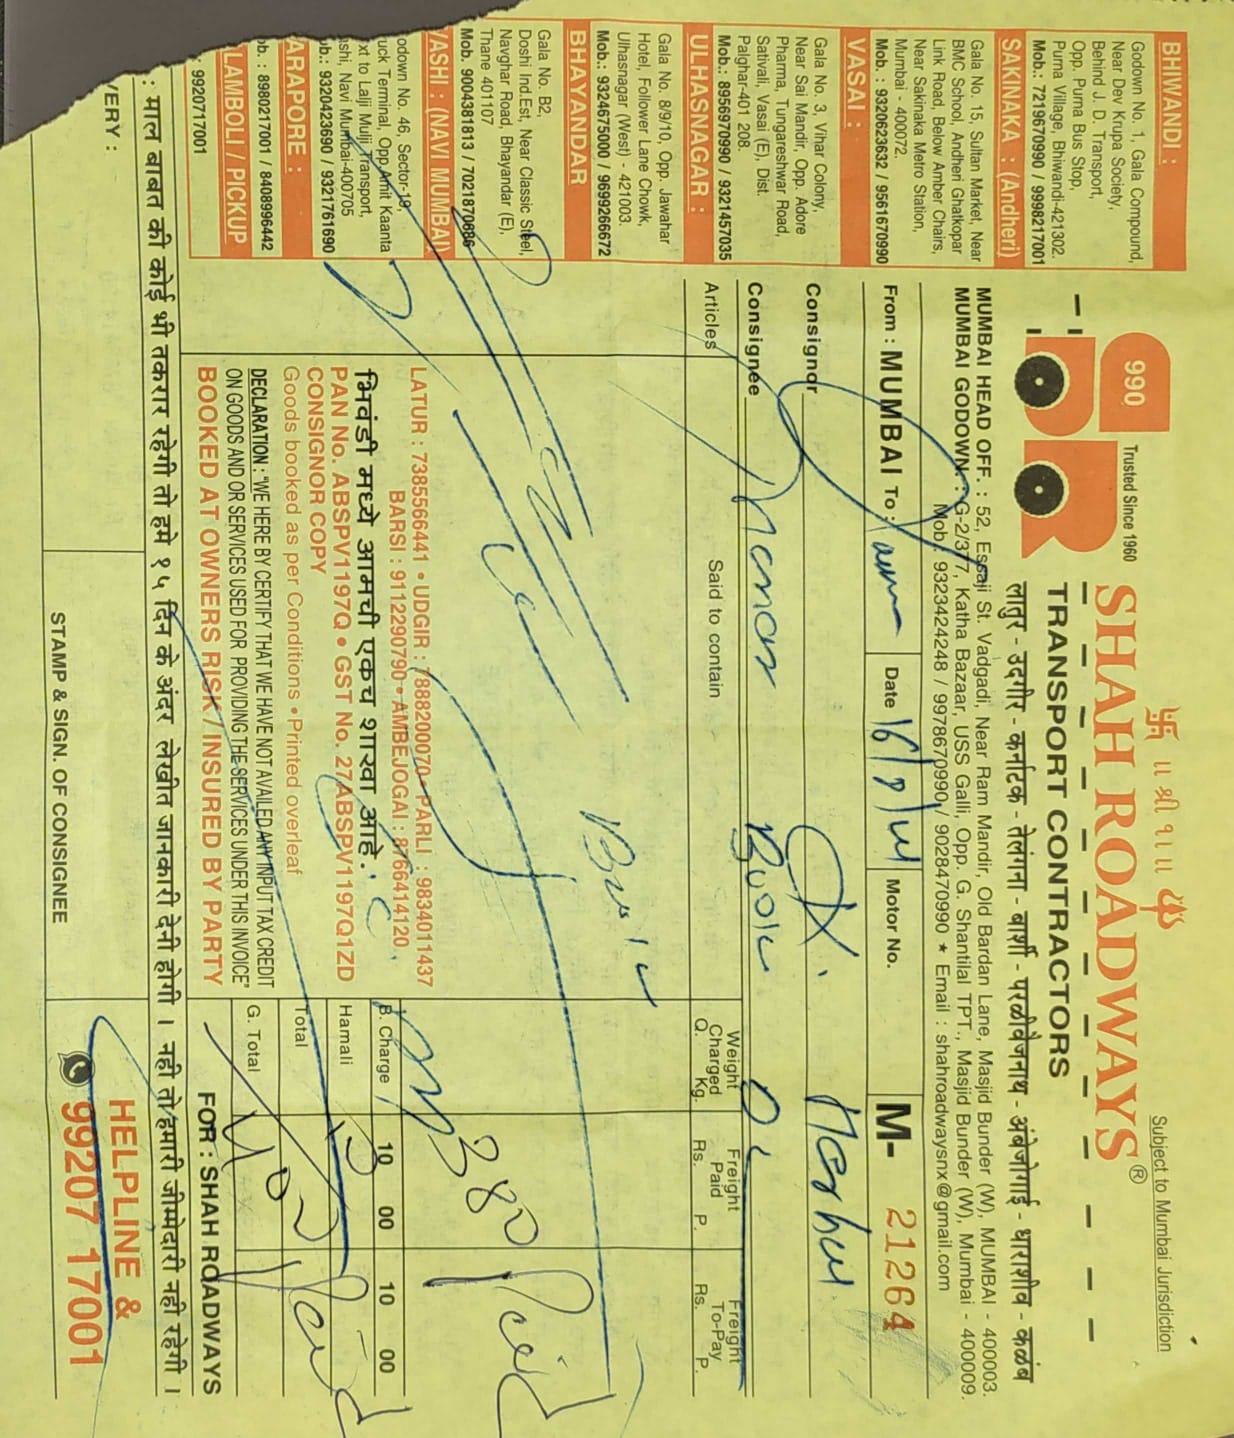 Subject to Mumbai Jurisdiction
卐 ॥ श्री १ ॥ ॐ
990
Trusted Since 1960
SHAH ROADWAYS®
TRANSPORT CONTRACTORS
लातुर - उदगीर - कर्नाटक - तेलंगना - बार्शी - परळीवैजनाथ - अंबेजोगाई - धाराशीव - कळंब
MUMBAI HEAD OFF. : 52, Essaji St. Vadgadi, Near Ram Mandir, Old Bardan Lane, Masjid Bunder (W), MUMBAI - 400003.
MUMBAI GODOWN : G-2/377, Katha Bazaar, USS Galli, Opp. G. Shantilal TPT., Masjid Bunder (W), Mumbai - 400009.
Mob.: 9323424248 / 9978670990 / 9028470990 ★ Email : shahroadwaysnx@gmail.com
From : MUMBAI To : Date Motor No. M- 21264
Consignor
Consignee Book
Articles Said to contain Weight Charged Q. Kg. Freight Paid Rs. P. Freight To-Pay Rs. P.
380 Paid
LATUR : 7385566441 • UDGIR : 7888200070 • PARLI : 9834011437
BARSI : 9112290790 • AMBEJOGAI : 8766414120
भिवंडी मध्ये आमची एकच शाखा आहे.
PAN No. ABSPV1197Q • GST No. 27ABSPV1197Q1ZD
CONSIGNOR COPY
Goods booked as per Conditions • Printed overleaf
DECLARATION : "WE HERE BY CERTIFY THAT WE HAVE NOT AVAILED ANY INPUT TAX CREDIT
ON GOODS AND OR SERVICES USED FOR PROVIDING THE SERVICES UNDER THIS INVOICE"
BOOKED AT OWNERS RISK / INSURED BY PARTY
B. Charge 10 00 10 00
Hamali 10
Total
G. Total 400 Paid
FOR : SHAH ROADWAYS
: माल बाबत की कोई भी तकरार रहेगी तो हमे १५ दिन के अंदर लेखीत जानकारी देनी होगी । नही तो हमारी जीम्मेदारी नही रहेगी ।
VERY :
STAMP & SIGN. OF CONSIGNEE
HELPLINE &
99207 17001
BHIWANDI :
Godown No. 1, Gala Compound,
Near Dev Krupa Society,
Behind J. D. Transport,
Opp. Purna Bus Stop,
Purna Village, Bhiwandi-421302.
Mob.: 7219670990 / 9998217001
SAKINAKA : (Andheri)
Gala No. 15, Sultan Market, Near
BMC School, Andheri Ghatkopar
Link Road, Below Amber Chairs,
Near Sakinaka Metro Station,
Mumbai - 400072.
Mob. : 9320623632 / 9561670990
VASAI :
Gala No. 3, Vihar Colony,
Near Sai Mandir, Opp. Adore
Pharma, Tungareshwar Road,
Sativali, Vasai (E), Dist.
Palghar-401 208.
Mob.: 8956970990 / 9321457035
ULHASNAGAR :
Gala No. 8/9/10, Opp. Jawahar
Hotel, Follower Lane Chowk,
Ulhasnagar (West) - 421003.
Mob.: 9324675000 / 9699266672
BHAYANDAR
Gala No. B2,
Doshi Ind.Est, Near Classic Steel,
Navghar Road, Bhayandar (E),
Thane 401107
Mob. 9004381813 / 7021870686
VASHI : (NAVI MUMBAI)
odown No. 46, Sector-19,
uck Terminal, Opp Amit Kaanta
xt to Lalji Mulji Transport,
ashi, Navi Mumbai-400705
b.: 9320423690 / 9321761690
ARAPORE :
ob. : 8980217001 / 8408996442
LAMBOLI / PICKUP
9920717001